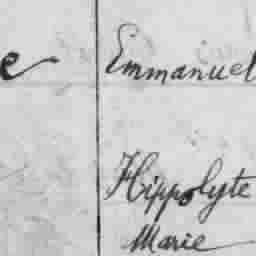 e Emmanuel
Hippolyte
Marie